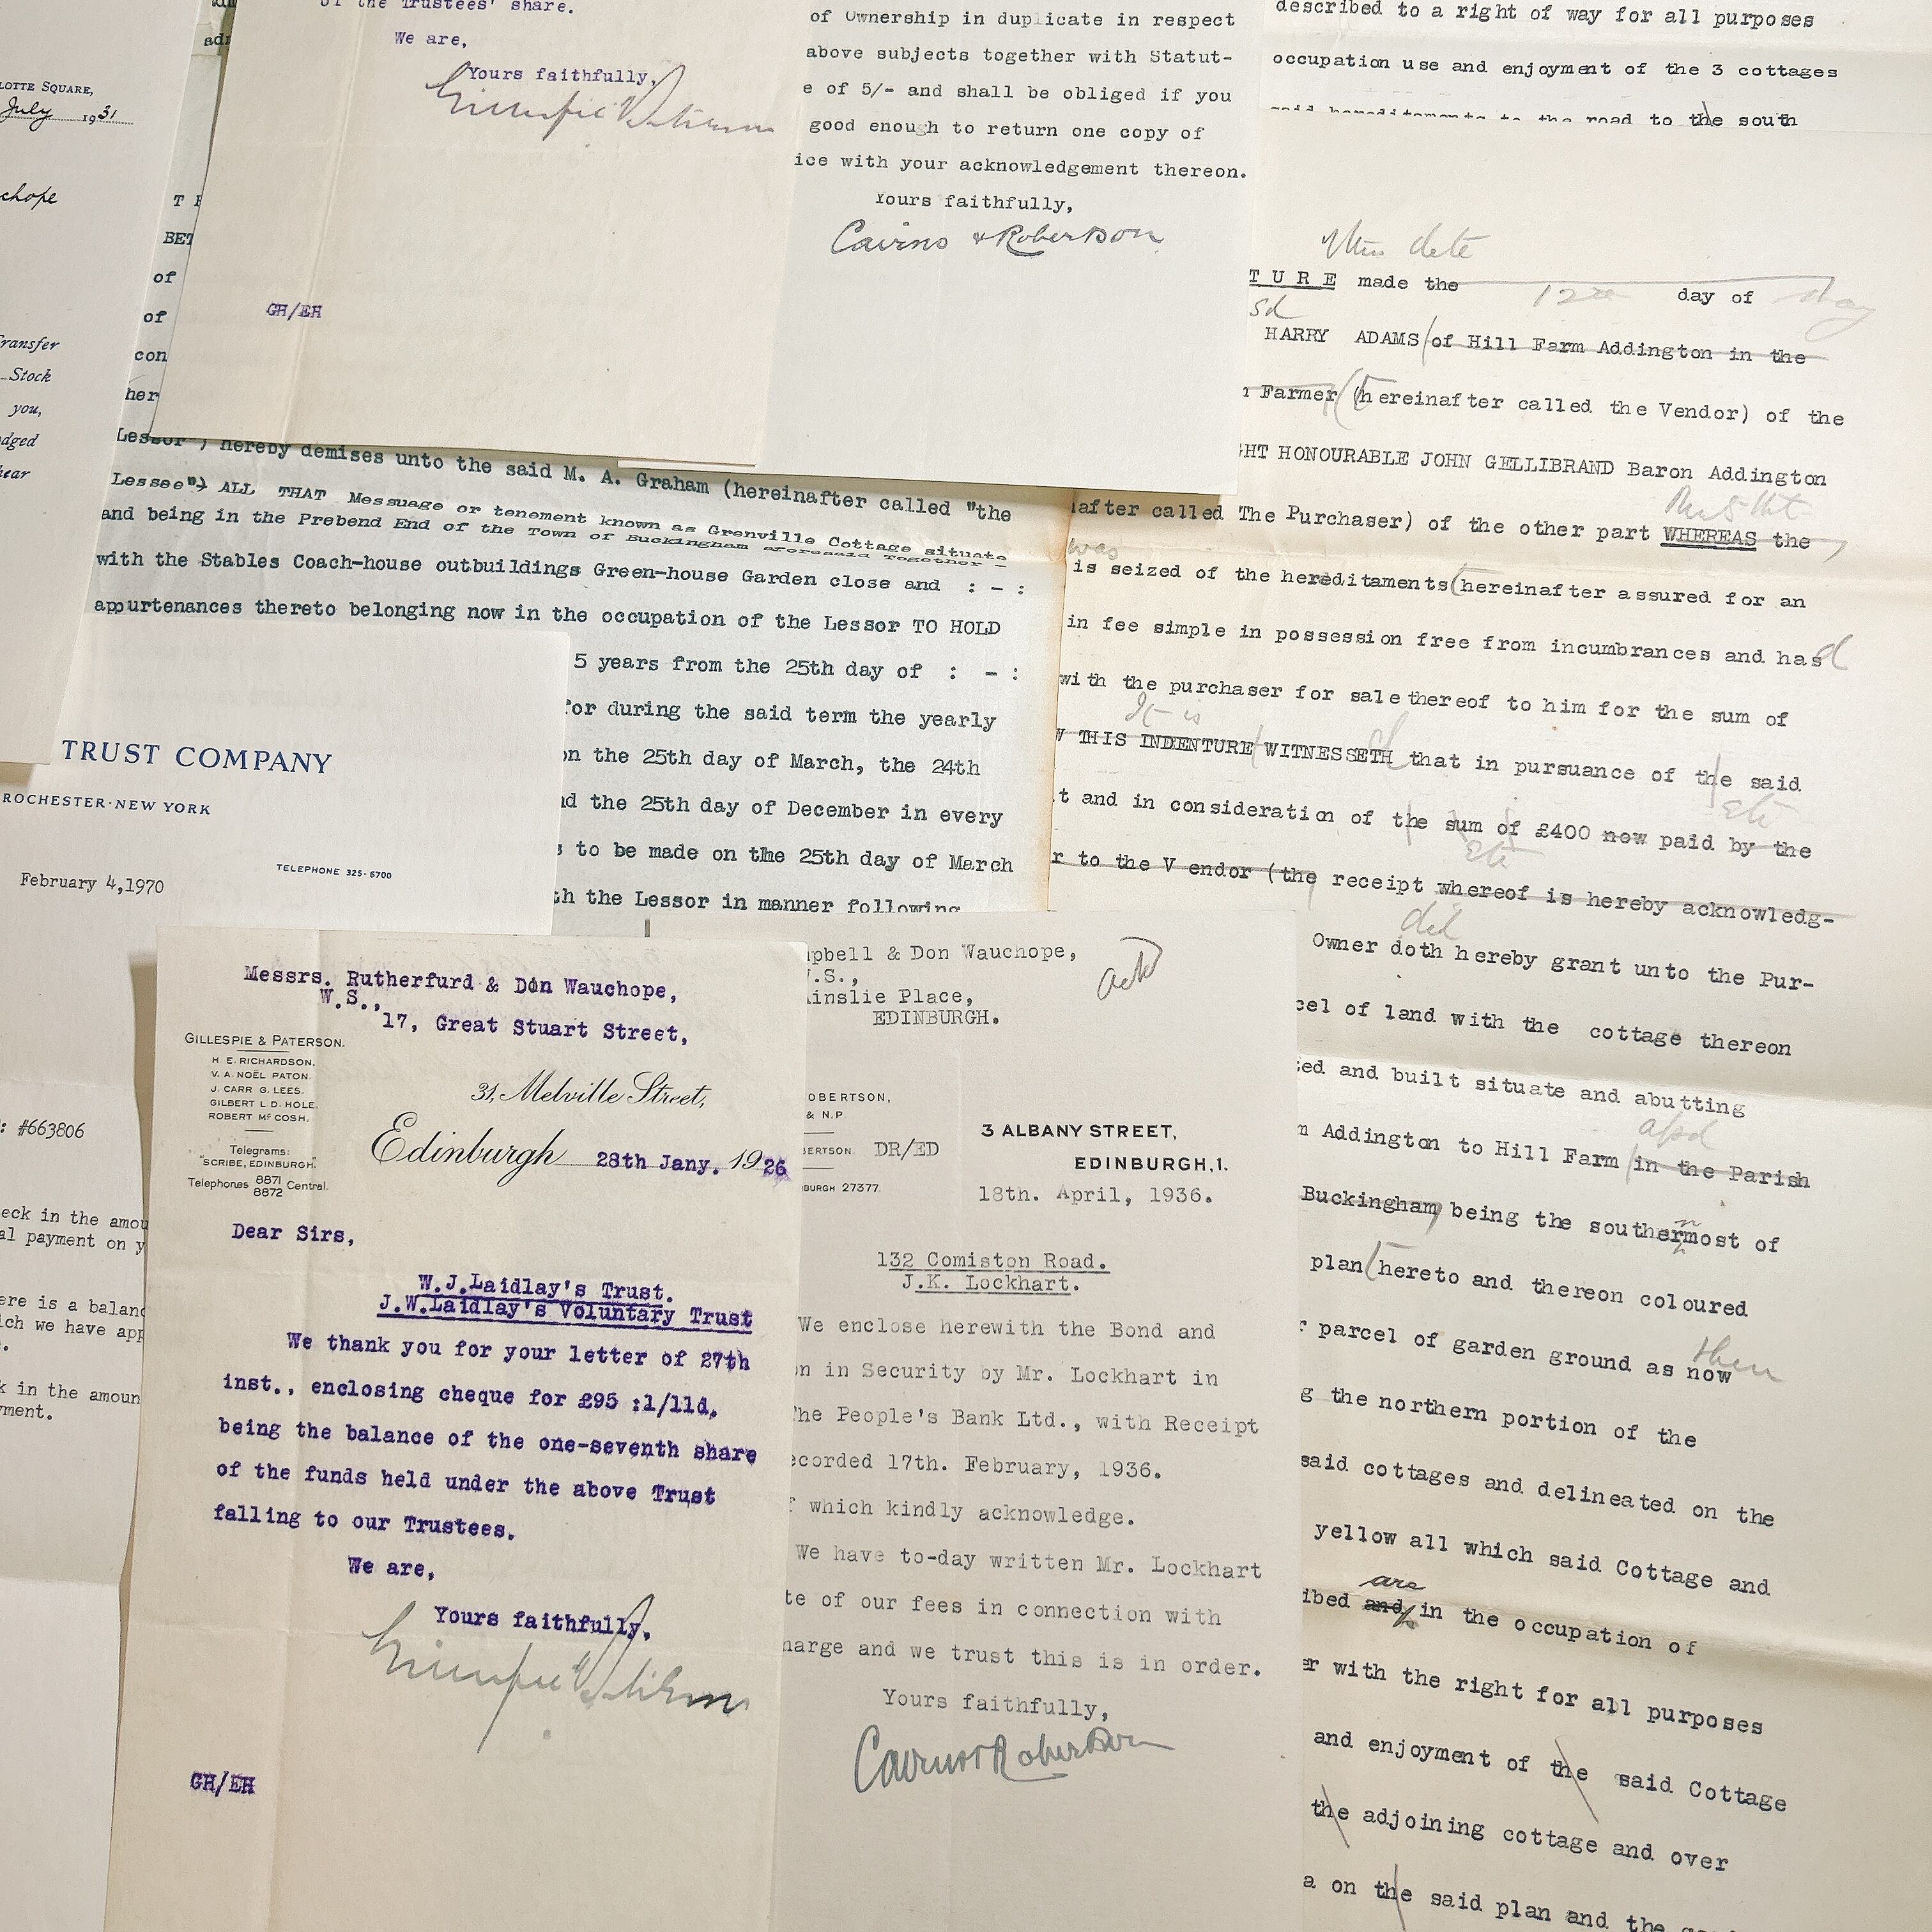 LOTTE SQUARE,
July 1931
chope
ransfer
Stock
you,
dged
hear
of the Trustees' share.
We are,
Yours faithfully,
GH/EH
of Ownership in duplicate in respect
above subjects together with Statut-
e of 5/- and shall be obliged if you
good enough to return one copy of
ice with your acknowledgement thereon.
Yours faithfully,
Cairns & Robertson
described to a right of way for all purposes
occupation use and enjoyment of the 3 cottages
said hereditaments to the road to the south
T U R E made the 12th day of May
sd
HARRY ADAMS of Hill Farm Addington in the
n Farmer (hereinafter called the Vendor) of the
GHT HONOURABLE JOHN GELLIBRAND Baron Addington
nafter called The Purchaser) of the other part WHEREAS the
was
is seized of the hereditaments hereinafter assured for an
in fee simple in possession free from incumbrances and has d
with the purchaser for sale thereof to him for the sum of
It is
W THIS INDENTURE WITNESSETH that in pursuance of the said
t and in consideration of the sum of £400 now paid by the
r to the V endor (the receipt whereof is hereby acknowledg-
did
Owner doth hereby grant unto the Pur-
cel of land with the cottage thereon
ted and built situate and abutting
m Addington to Hill Farm in the Parish
Buckingham being the southermost of
plan hereto and thereon coloured
then
r parcel of garden ground as now
g the northern portion of the
said cottages and delineated on the
yellow all which said Cottage and
are
ibed and in the occupation of
er with the right for all purposes
and enjoyment of the said Cottage
the adjoining cottage and over
a on the said plan and the
BET
of
of
con
her
Lessor") hereby demises unto the said M. A. Graham (hereinafter called "the
Lessee") ALL THAT Messuage or tenement known as Grenville Cottage situate
and being in the Prebend End of the Town of Buckingham aforesaid Together -
with the Stables Coach-house outbuildings Green-house Garden close and : - :
appurtenances thereto belonging now in the occupation of the Lessor TO HOLD
5 years from the 25th day of : - :
for during the said term the yearly
on the 25th day of March, the 24th
nd the 25th day of December in every
s to be made on the 25th day of March
th the Lessor in manner following
TRUST COMPANY
ROCHESTER·NEW YORK
TELEPHONE 325-6700
February 4,1970
: #663806
eck in the amou
al payment on y
ere is a balanc
ich we have app
k in the amoun
yment.
Messrs. Rutherfurd & Don Wauchope,
W.S.,
17, Great Stuart Street,
GILLESPIE & PATERSON.
H. E. RICHARDSON.
V. A. NOËL PATON.
J. CARR G. LEES.
GILBERT L. D. HOLE.
ROBERT Mc COSH.
Telegrams:
"SCRIBE, EDINBURGH."
Telephones 8871 8872 Central.
31, Melville Street,
Edinburgh 28th Jany. 1926
Dear Sirs,
W.J.Laidlay's Trust.
J.W.Laidlay's Voluntary Trust
We thank you for your letter of 27th
inst., enclosing cheque for £95 :1/11d,
being the balance of the one-seventh share
of the funds held under the above Trust
falling to our Trustees.
We are,
Yours faithfully,
GH/EH
pbell & Don Wauchope,
W.S.,
Ainslie Place,
EDINBURGH.
ackd
OBERTSON,
& N.P
BERTSON.
DR/ED
BURGH 27377.
3 ALBANY STREET,
EDINBURGH,1.
18th. April, 1936.
132 Comiston Road.
J.K. Lockhart.
We enclose herewith the Bond and
on in Security by Mr. Lockhart in
The People's Bank Ltd., with Receipt
ecorded 17th. February, 1936.
f which kindly acknowledge.
We have to-day written Mr. Lockhart
te of our fees in connection with
harge and we trust this is in order.
Yours faithfully,
Cairns & Robertson